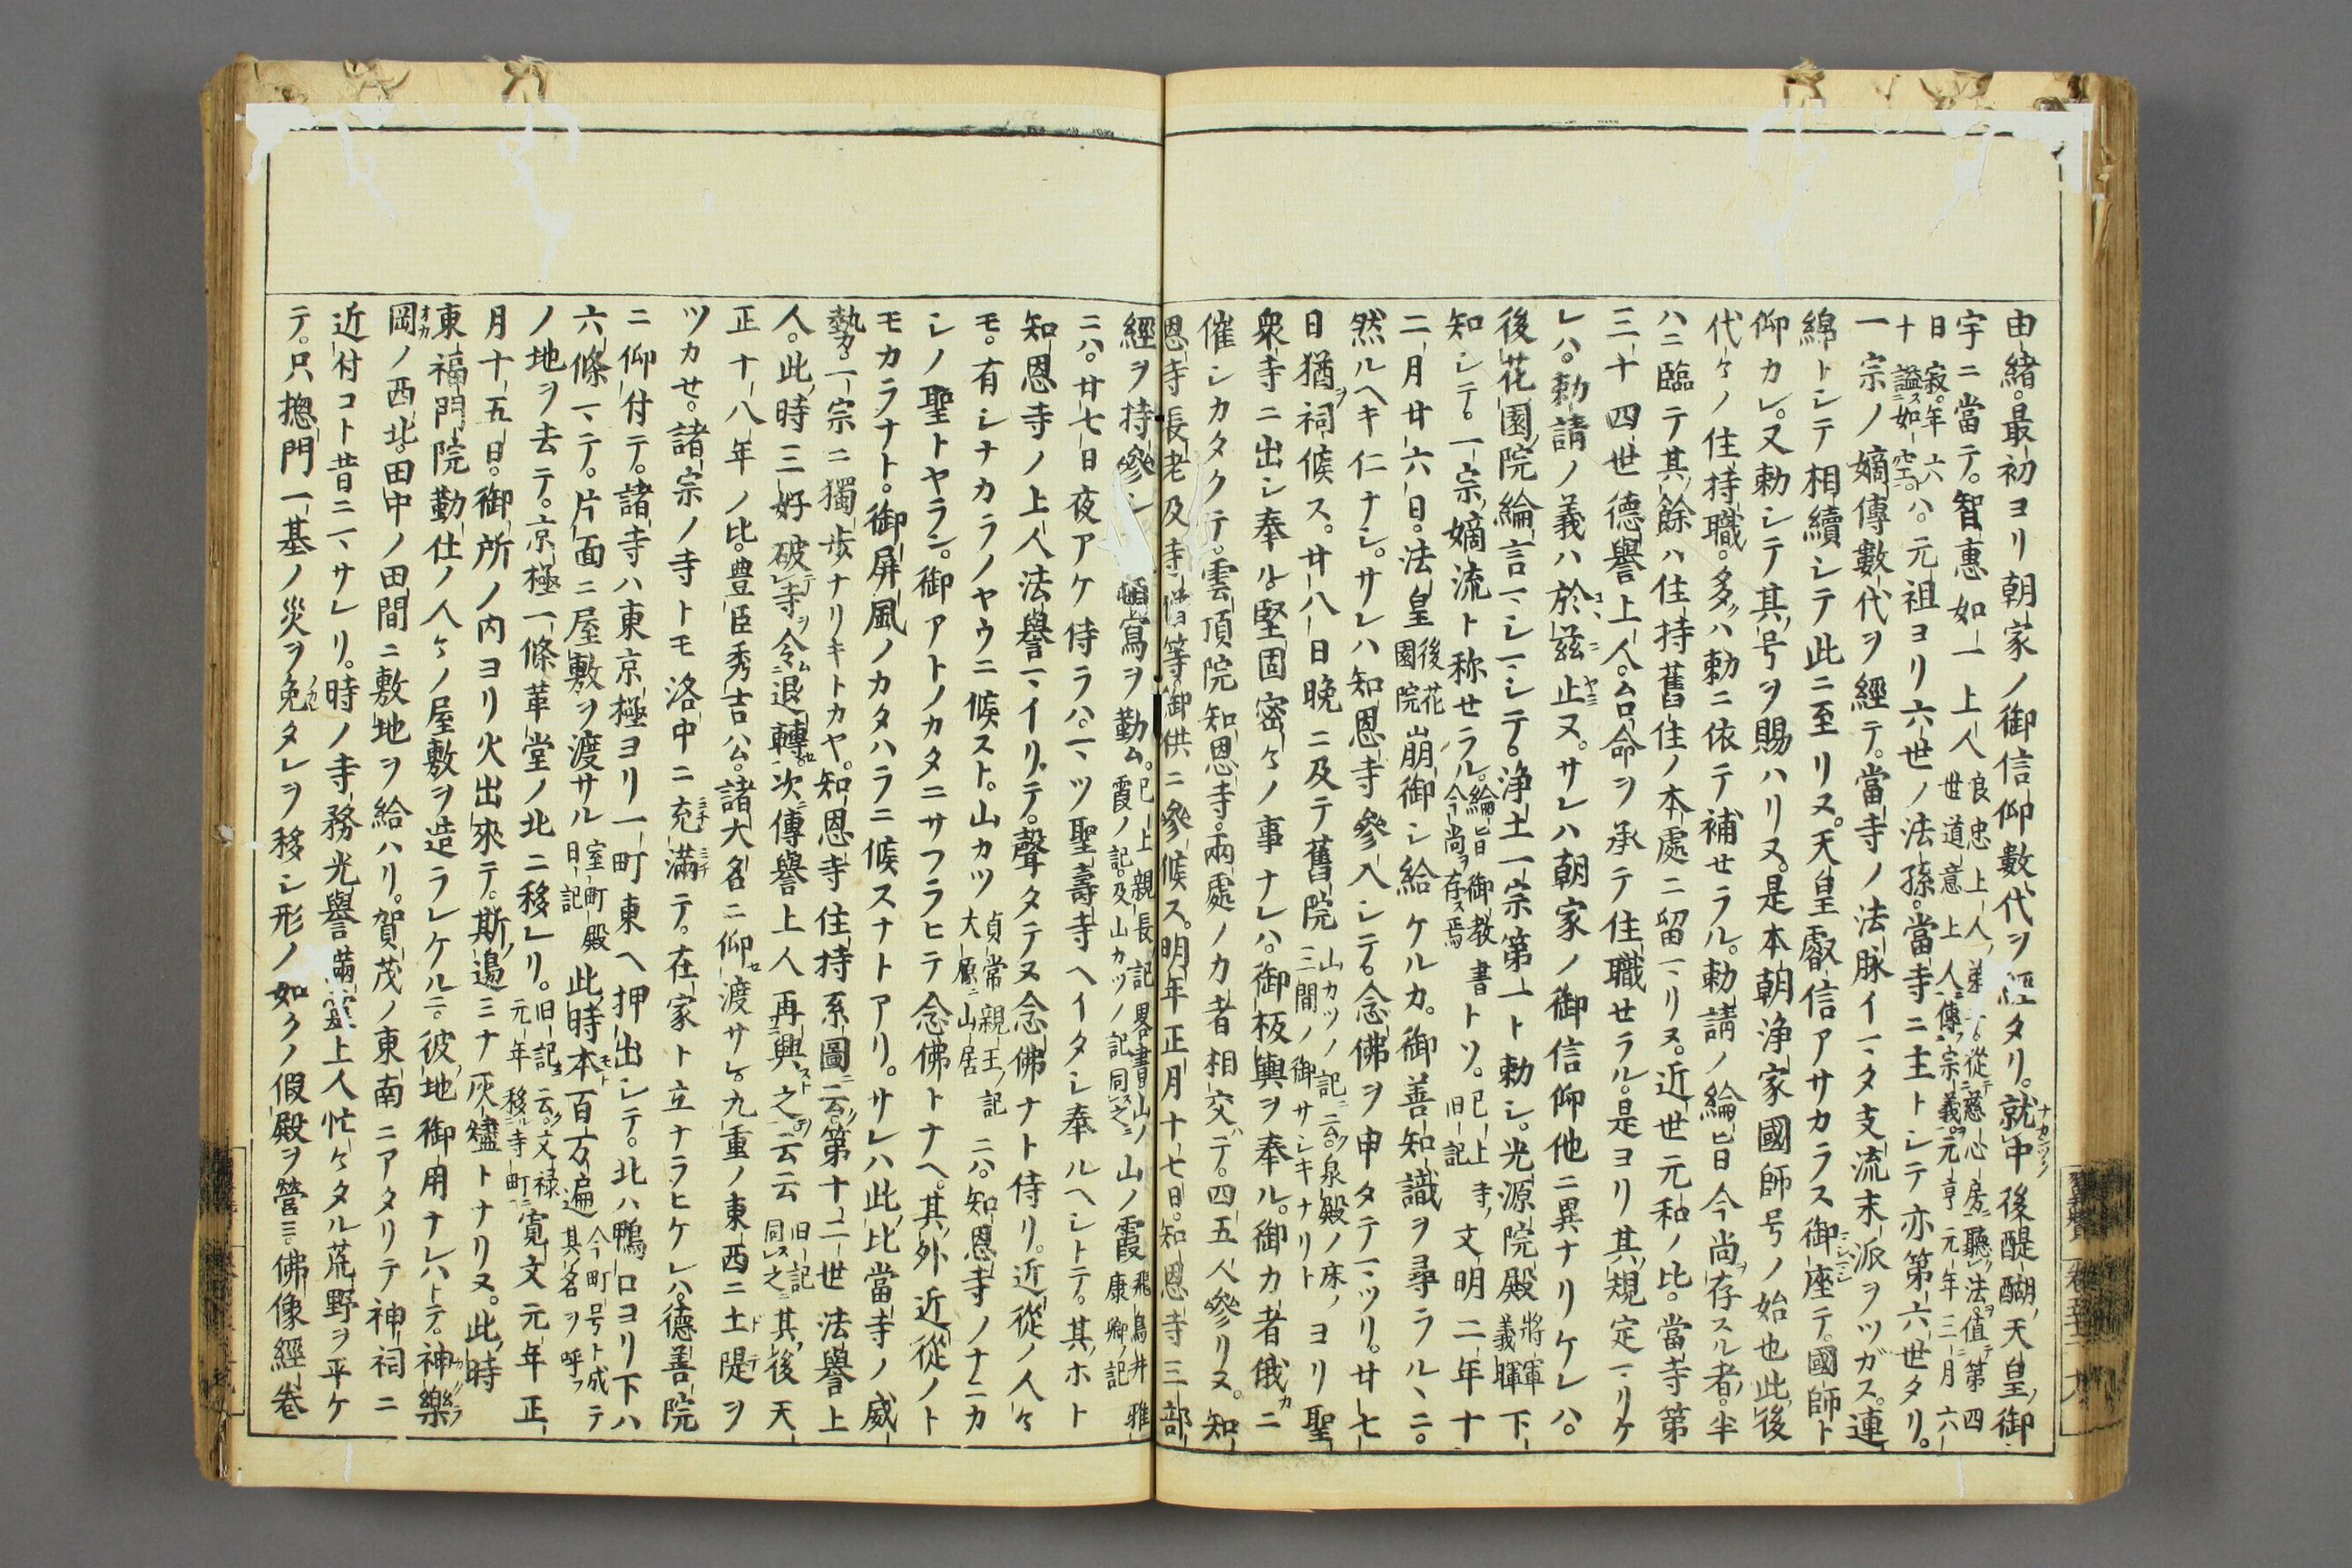 由緒。最初ヨリ朝家ノ御信仰數代ヲ經タリ。就中後醍醐天皇ノ御
宇ニ當テ。智惠如一上人良忠上人ノ弟從テ慈心房ニ聽法ヲ値テ第四世道意上人ニ傳フ宗義ヲ元亨元年三月六
日寂ス年六十謚ス如空トハ。元祖ヨリ六世ノ法孫。當寺ニ主トシテ亦第六世タリ。
一宗ノ嫡傳數代ヲ經テ。當寺ノ法脉イマタ支流末派ヲツガス。連
綿トシテ相續シテ此ニ至リヌ。天皇叡信アサカラス御座テ。國師ト
仰カレ。又勅シテ其号ヲ賜ハリヌ。是本朝浄家國師号ノ始也此後
代々ノ住持職。多クハ勅ニ依テ補セラル。勅請ノ綸旨今尚存スル者。半
ハニ臨テ其餘ハ住持舊住ノ本處ニ留マリヌ。近世元和ノ比。當寺第
三十四世德譽上人。台命ヲ承テ住職セラル。是ヨリ其規定マリケ
レハ。勅請ノ義ハ於茲止ヌ。サレハ朝家ノ御信仰他ニ異ナリケレハ。
後花園院綸言マシマシテ。浄土一宗第一ト勅シ。光源院殿將軍義暉下
知シテ。一宗ノ嫡流ト称セラル。綸旨御教書今尚ヲ存ス焉トソ。已上寺ノ旧記文明二年十
二月廿六日。法皇後花園院崩御シ給ケルカ。御善知識ヲ尋ラルヽニ。
然ルヘキ仁ナシ。サレハ知恩寺參入シテ。念佛ヲ申タテマツリ。廿七
日猶祠候ス。廿八日晩ニ及テ舊院山カツノ記ニ云ク泉殿ノ床ノ三間ノ御サシキナリトヨリ聖
衆寺ニ出シ奉ル堅固密々ノ事ナレハ。御板輿ヲ奉ル。御カ者俄カニ
催シカタクテ。雲頂院知恩寺。兩處ノカ者相交テ。四五人參リヌ。知
恩寺長老及寺僧等御供ニ參候ス。明年正月十七日。知恩寺三部
經ヲ持參シ頓寫ヲ勤ム。已上親長記畧書山ノ霞ノ記及山カツノ記同之ニ山ノ霞飛鳥井雅康卿ノ記
ニハ。廿七日夜アケ侍ラハ。マツ聖壽寺ヘイタシ奉ルヘシトテ。其ホト
知恩寺ノ上人法譽マイリテ。聲タテヌ念佛ナト侍リ。近從ノ人々
モ。有シナカラノヤウニ候スト。山カツ貞常親王ノ記大原ニ山居ニハ。知恩寺ノナニカ
シノ聖トヤラン。御アトノカタニサフラヒテ念佛トナヘ。其外近從ノト
モカラナト。御屏風ノカタハラニ候スナトアリ。サレハ此比當寺ノ威
勢。一宗ニ獨歩ナリキトカヤ。知恩寺住持系圖ニ云。第十二世法譽上
人。此時三好破寺ヲ令ム退轉セ。次ニ傳譽上人再興スト之ヲ云云旧記同之ニ其後天
正十八年ノ比。豊臣秀吉公。諸大名ニ仰セ渡サレ。九重ノ東西ニ土隄ヲ
ツカセ。諸宗ノ寺トモ洛中ニ充滿テ。在家ト立ナラヒケレハ。德善院
ニ仰付テ。諸寺ハ東京極ヨリ一町東ヘ押出シテ。北ハ鴨口ヨリ下ハ
六條マテ。片面ニ屋敷ヲ渡サル室町殿日記此時本百万遍今町号ト成テ其名ヲ呼フ
ノ地ヲ去テ。京極一條革堂ノ北ニ移レリ。旧記云ク文禄元年移ル寺町ニ寛文元年正
月十五日。御所ノ内ヨリ火出來テ。斯邉ミナ灰燼トナリヌ。此時
東福門院勤仕ノ人々ノ屋敷ヲ造ラレケルニ。彼地御用ナレハトテ。神樂
岡ノ西北。田中ノ田間ニ敷地ヲ給ハリ。賀茂ノ東南ニアタリテ神祠ニ
近付コト昔ニマサレリ。時ノ寺務光譽滿靈上人忙々タル荒野ヲ平ケ
テ。只摠門一基ノ災ヲ免タレヲ移シ形ノ如クノ假殿ヲ營ミ。佛像經卷